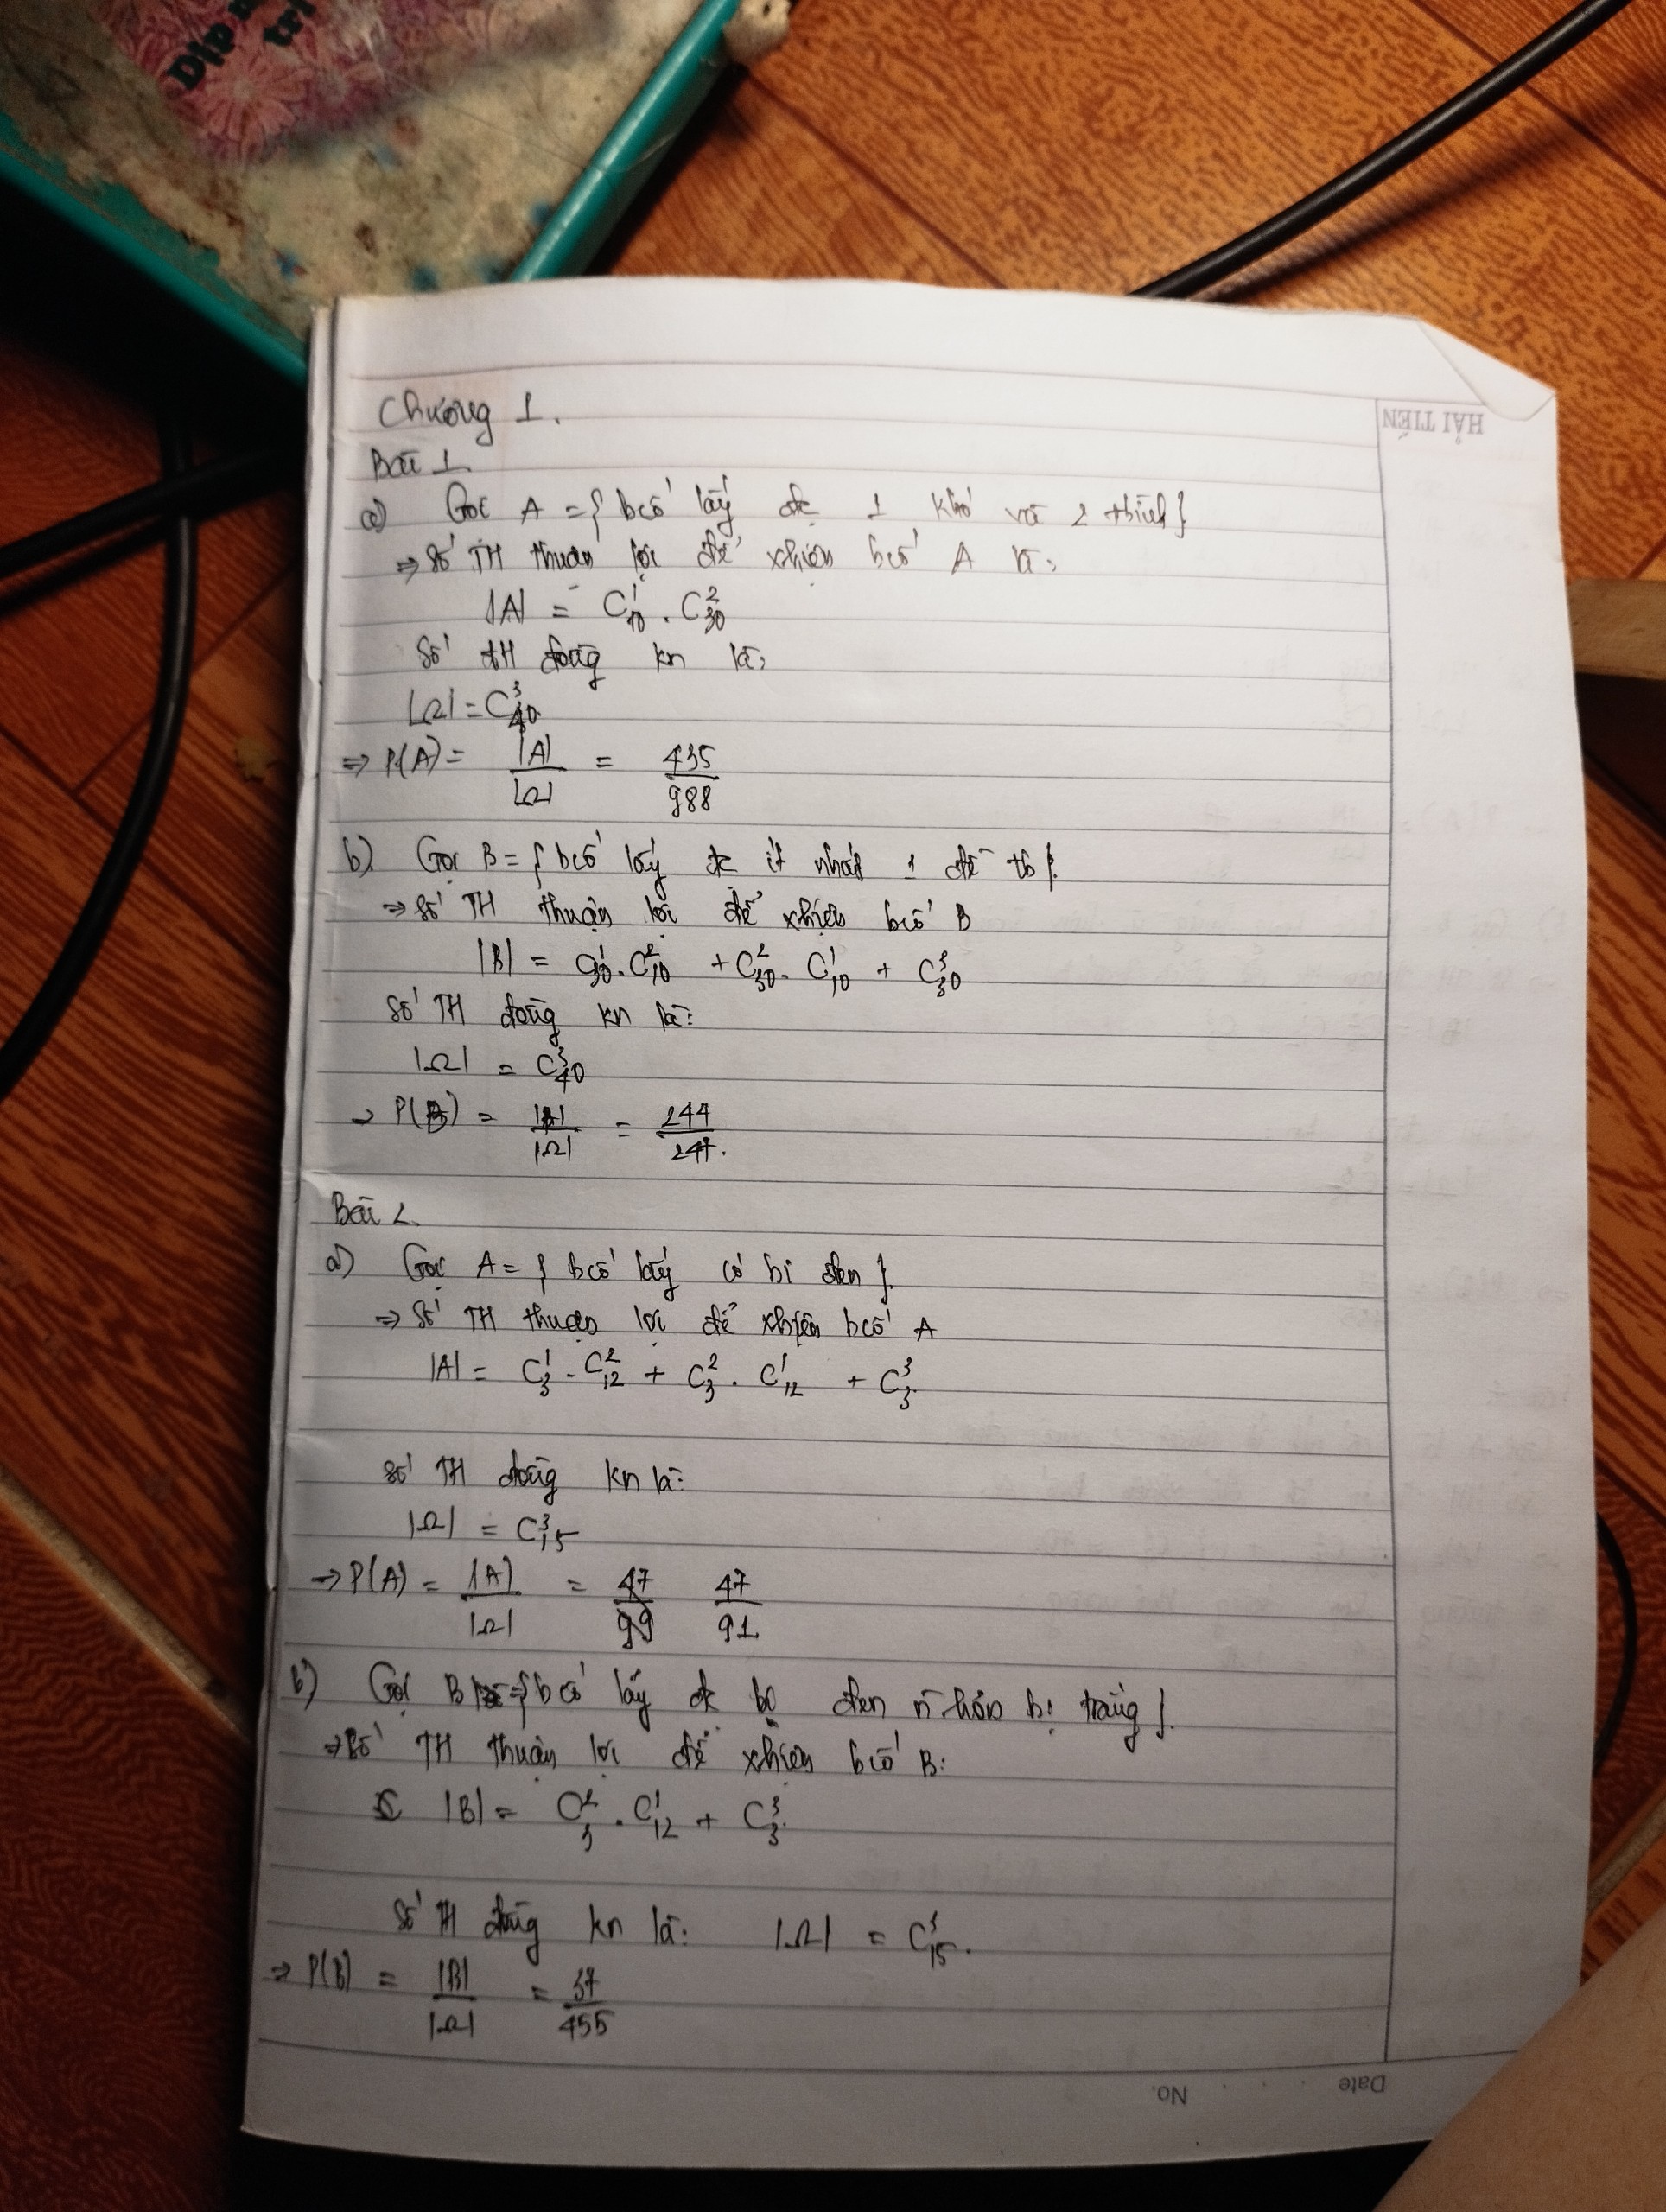 Dịp
trì
HẢI TIẾN
Chương 1.
Bài 1.
a) Gọi A = { bcố lấy đc 1 khó và 2 tbình }
⇒ Số TH thuận lợi để xhiện bcố A là:
|A| = C¹₁₀ . C²₃₀
Số TH đồng kn là:
|Ω| = C³₄₀
⇒ P(A) = |A|/|Ω| = 435/988
b) Gọi B = { bcố lấy đc ít nhất 1 đề tb }.
⇒ Số TH thuận lợi để xhiện bcố B
|B| = C¹₃₀ . C²₁₀ + C²₃₀ . C¹₁₀ + C³₃₀
Số TH đồng kn là:
|Ω| = C³₄₀
→ P(B) = |B|/|Ω| = 244/247.
Bài 2.
a) Gọi A = { bcố lấy có bi đen }.
⇒ Số TH thuận lợi để xhiện bcố A
|A| = C¹₃ . C²₁₂ + C²₃ . C¹₁₂ + C³₃.
Số TH đồng kn là:
|Ω| = C³₁₅
→ P(A) = |A|/|Ω| = 47/99 47/91
b) Gọi B = { bcố lấy đc bi đen n hơn bi trắng }.
⇒ Số TH thuận lợi để xhiện bcố B:
|B| = C²₃ . C¹₁₂ + C³₃.
Số TH đồng kn là: |Ω| = C³₁₅.
⇒ P(B) = |B|/|Ω| = 37/455
Date No.